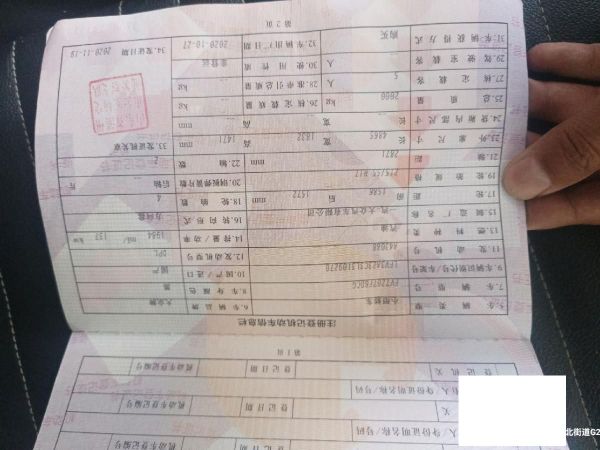 注册登记机动车信息栏
5.车辆类型 小型轿车 6.车辆品牌 大众牌
7.车辆型号 8.车身颜色 黑
9.车辆识别代号/车架号 10.国产/进口 国产
11.发动机号 12.发动机型号 DPL
13.燃料种类 汽油 14.排量/功率 1984 ml/ 137 kw
15.制造厂名称 一汽-大众汽车有限公司 16.转向形式 方向盘
17.轮距 前 1585 后 1572 mm 18.轮胎数 4
19.轮胎规格 215/55 R17 20.钢板弹簧片数 后轴 -- 片
21.轴距 2871 mm 22.轴数 2
23.外廓尺寸 长 4865 宽 1832 高 1471 mm 33.发证机关章
24.货箱内部尺寸 长 宽 高 mm
25.总质量 2000 kg 26.核定载质量 kg
27.核定载客 5 人 28.准牵引总质量 kg
29.驾驶室载客 人 30.使用性质 非营运
31.车辆获得方式 购买 32.车辆出厂日期 2020-10-27 34.发证日期 2020-11-18
第2页
第1页
登记机关 登记日期 机动车登记编号
人/身份证明名称/号码
登记日期 机动车登记编号
人/身份证明名称/号码
登记日期 机动车登记编号
北街道G2